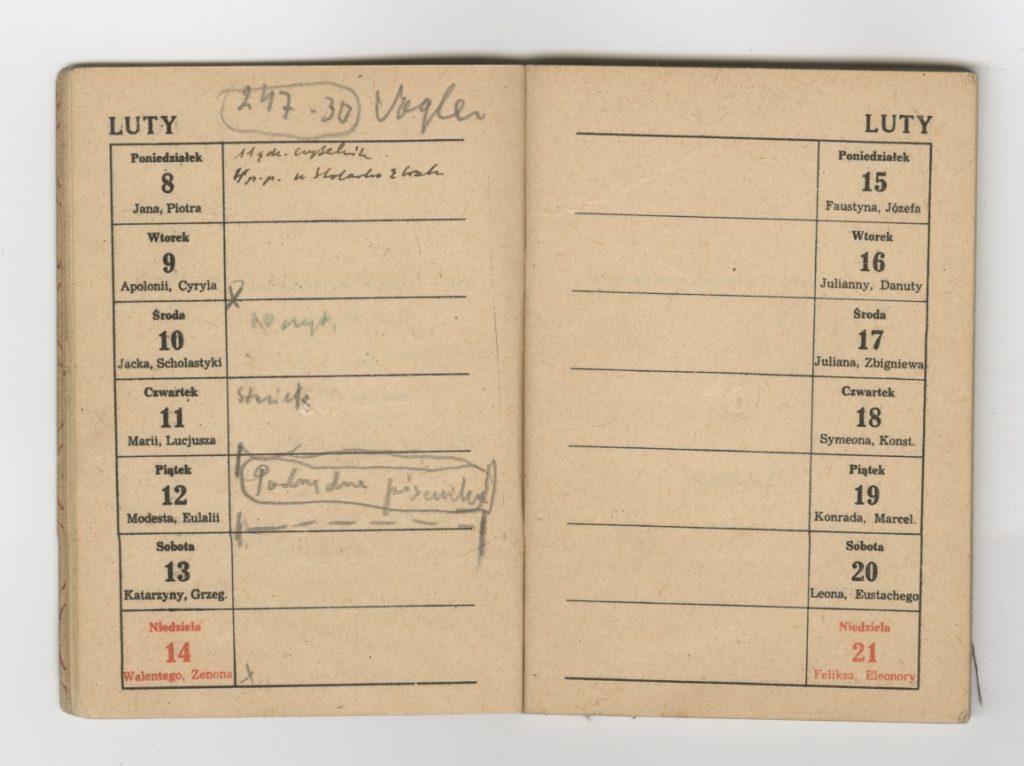 247-30 Vogler
LUTY
Poniedziałek
8
Jana, Piotra
Wtorek
9
Apolonii, Cyryla
x
Środa
10
Jacka, Scholastyki
Czwartek
11
Marii, Lucjusza
Piątek
12
Modesta, Eulalii
Sobota
13
Katarzyny, Grzeg.
Niedziela
14
Walentego, Zenona
x
LUTY
Poniedziałek
15
Faustyna, Józefa
Wtorek
16
Julianny, Danuty
Środa
17
Juliana, Zbigniewa
Czwartek
18
Symeona, Konst.
Piątek
19
Konrada, Marcel.
Sobota
20
Leona, Eustachego
Niedziela
21
Feliksa, Eleonory